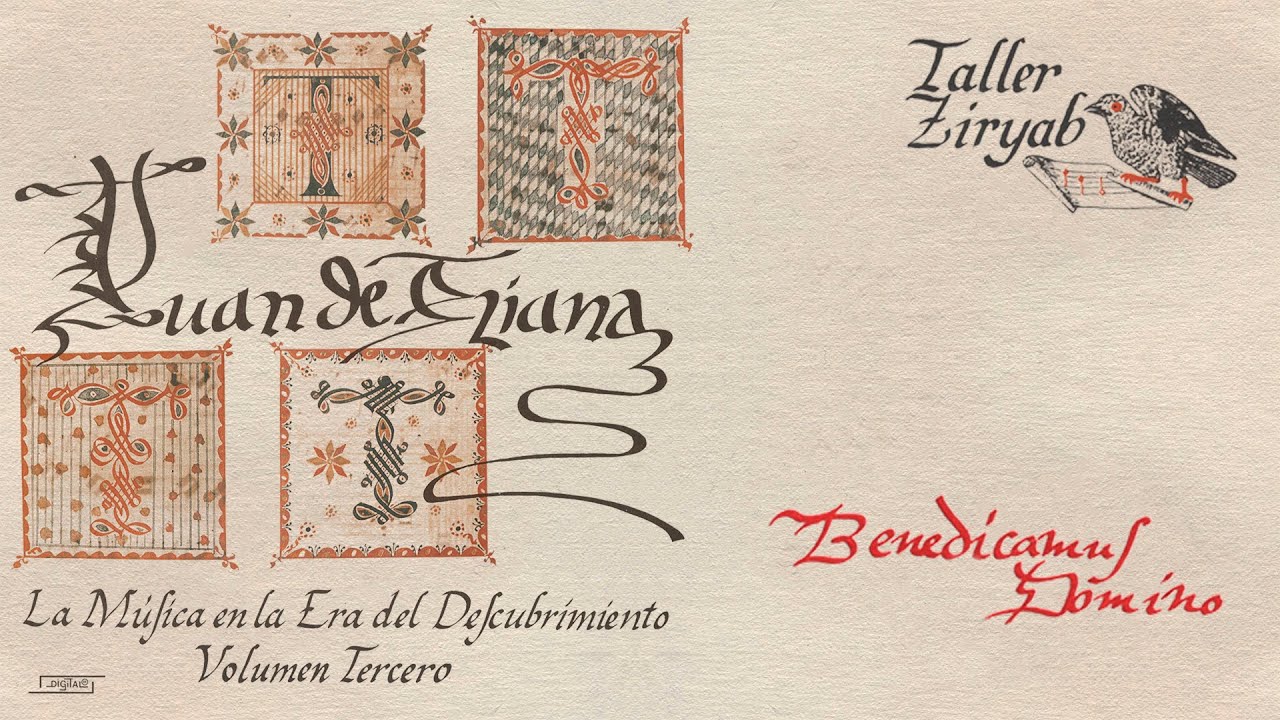 Taller
Ziryab
Juan de Triana
La Múſica en la Era del Deſcubrimiento
Volumen Tercero
Benedicamus
Domino
DIGITAL